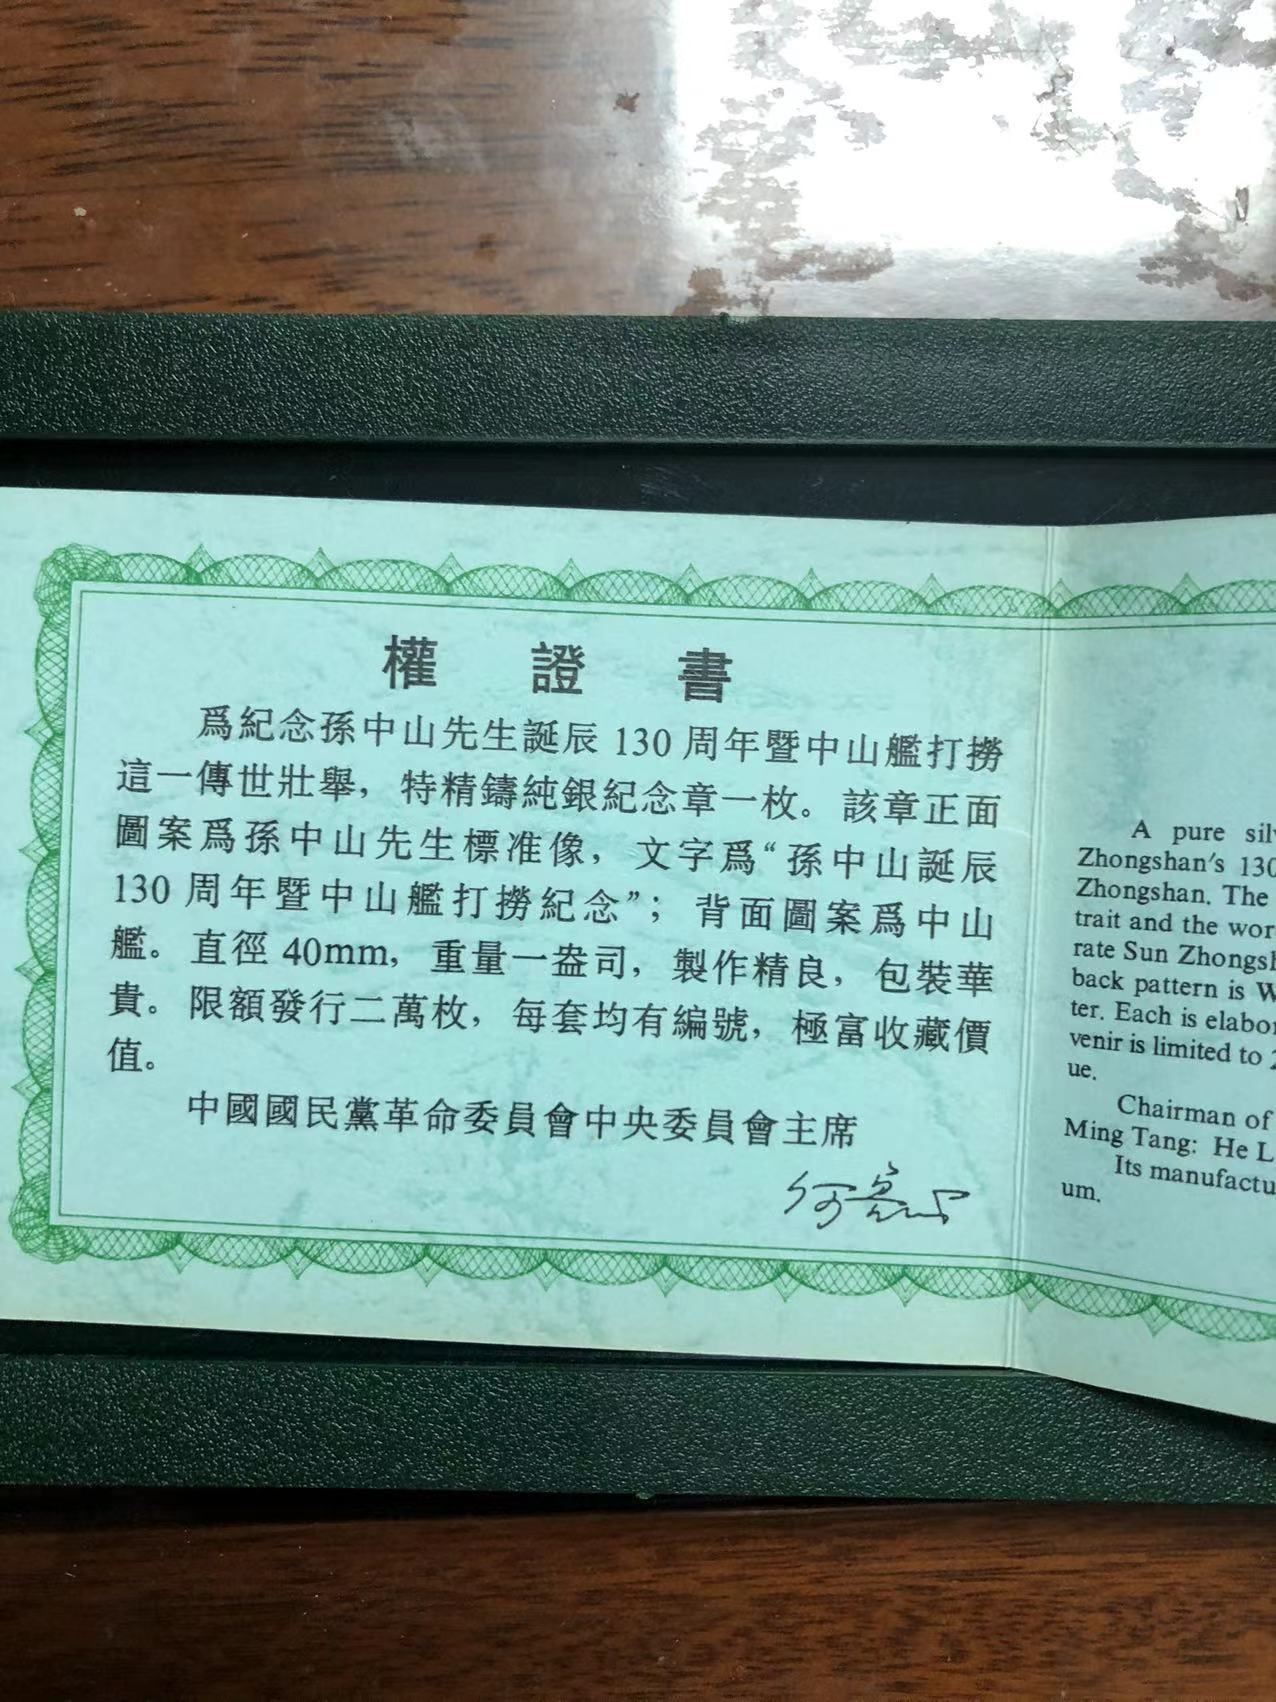 權證書
爲紀念孫中山先生誕辰 130 周年暨中山艦打撈
這一傳世壯舉，特精鑄純銀紀念章一枚。該章正面
圖案爲孫中山先生標准像，文字爲“孫中山誕辰
130 周年暨中山艦打撈紀念”；背面圖案爲中山
艦。直徑 40mm，重量一盎司，製作精良，包裝華
貴。限額發行二萬枚，每套均有編號，極富收藏價
值。
中國國民黨革命委員會中央委員會主席
何魯麗
A pure sil
Zhongshan's 130
Zhongshan. The
trait and the wor
rate Sun Zhongsh
back pattern is W
ter. Each is elabor
venir is limited to 2
ue.
Chairman of
Ming Tang: He L
Its manufactu
um.